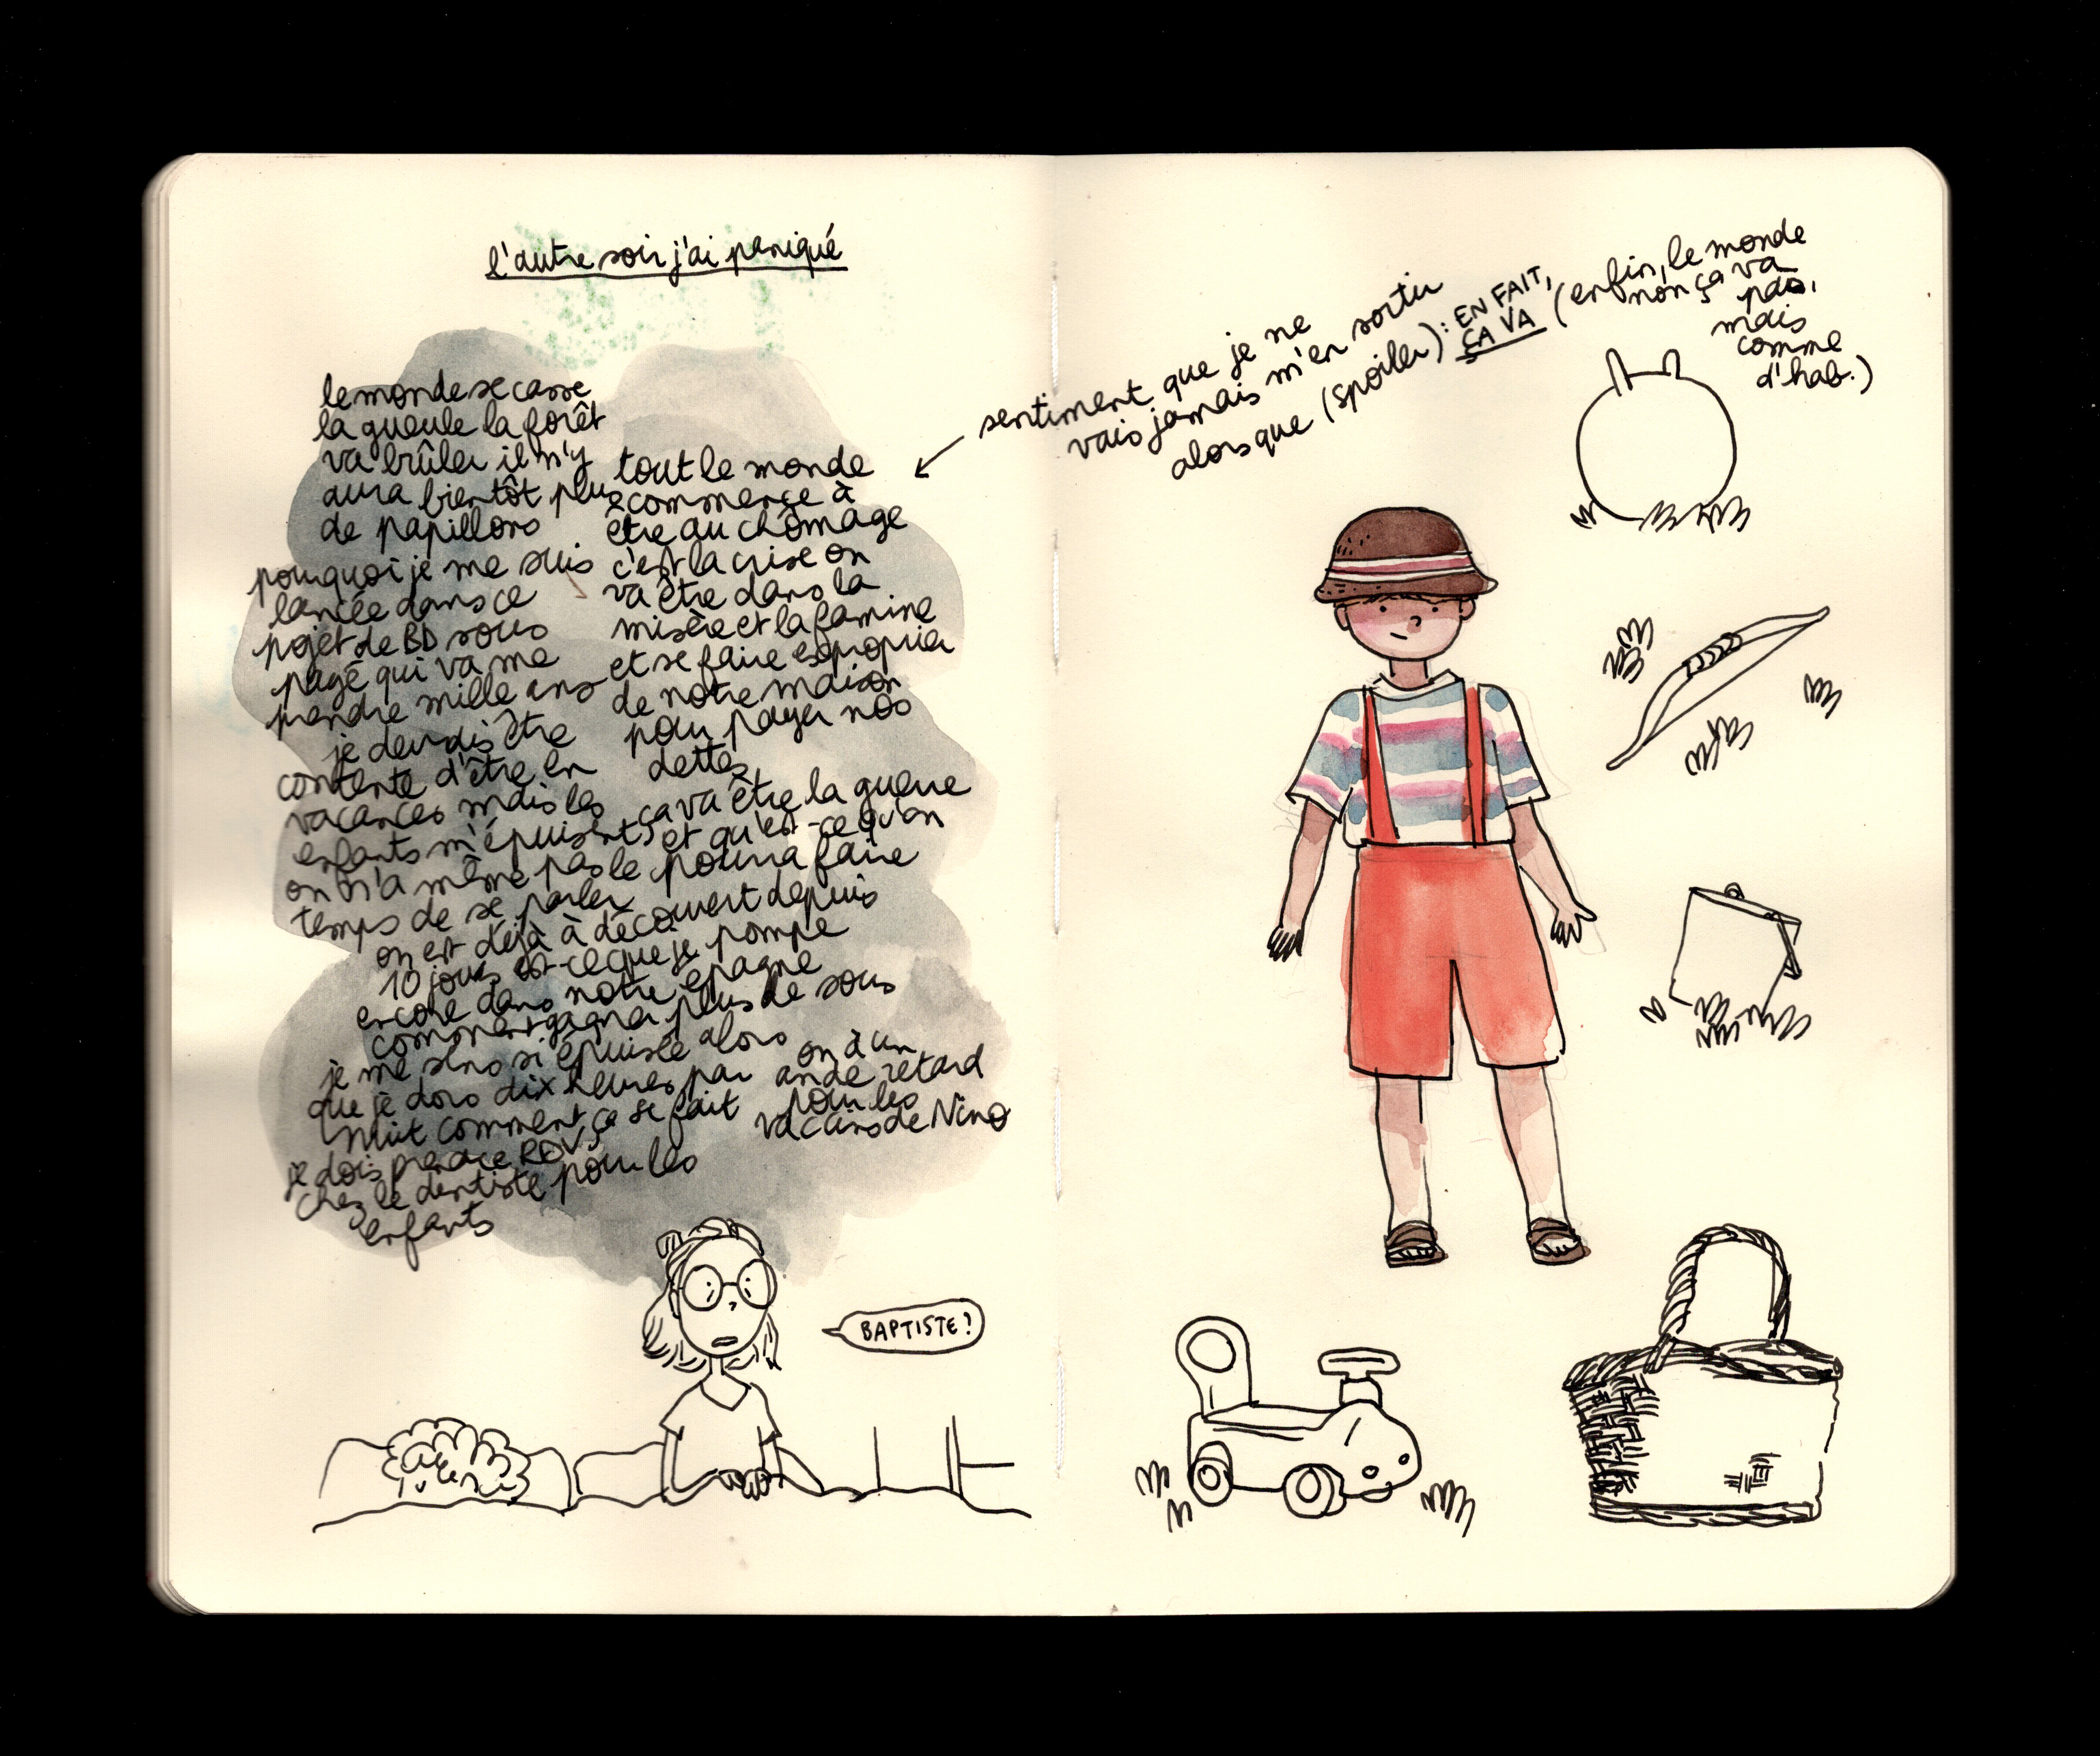 l'autre soir j'ai paniqué
le monde se casse
la gueule la forêt
va brûler il n'y
aura bientôt plus
de papillons
pourquoi je me suis
lancée dans ce
projet de BD sous
payé qui va me
prendre mille ans
je devrais être
contente d'être en
vacances mais les
enfants m'épuisent
on n'a même pas le
temps de se parler
tout le monde
commence à
être au chômage
c'est la crise on
va être dans la
misère et la famine
et se faire exproprier
de notre maison
pour payer nos
dettes
ça va être la guerre
et qu'est-ce qu'on
pourra faire
on est déjà à découvert depuis
10 jours est-ce que je pompe
encore dans notre épagne
comment gagner plus de sous
je me sens si épuisée alors
que je dors dix heures par
nuit comment ça se fait
je dois prendre RDV
chez le dentiste pour les
enfants
on a un
an de retard
pour les
vaccins de Nino
BAPTISTE?
sentiment que je ne
vais jamais m'en sortir
alors que (spoiler): EN FAIT,
ÇA VA
(enfin, le monde
non ça va
pas,
mais
comme
d'hab.)